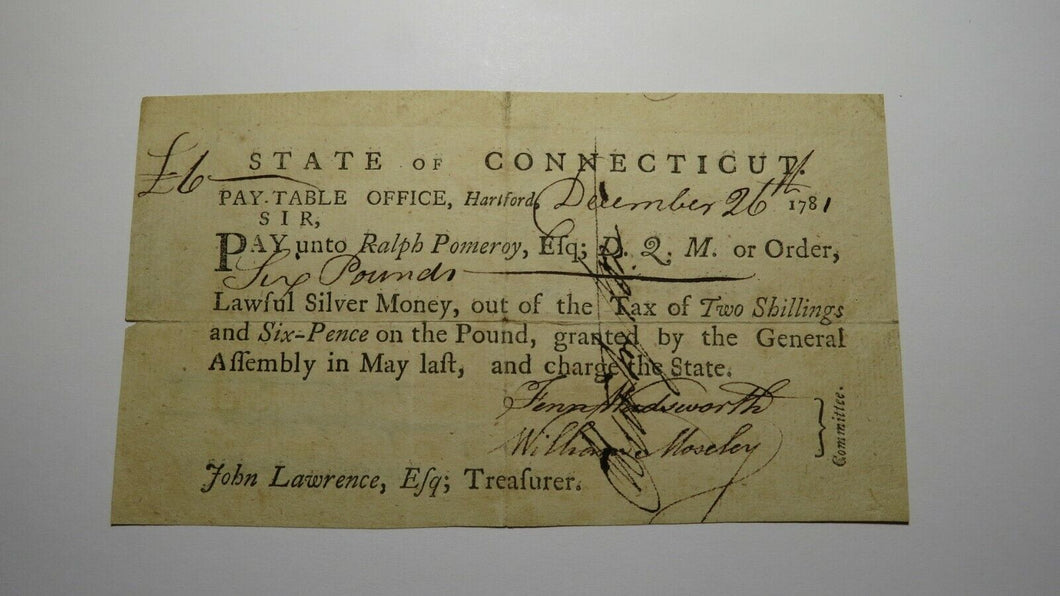 £6
STATE OF CONNECTICUT.
PAY-TABLE OFFICE, Hartford, December 26th 1781
SIR,
PAY unto Ralph Pomeroy, Eſq; D. Q. M. or Order,
Six Pounds
Lawful Silver Money, out of the Tax of Two Shillings
and Six-Pence on the Pound, granted by the General
Aſſembly in May laſt, and charge the State.
Fenn Wadsworth
William Moseley
Committee.
John Lawrence, Eſq; Treaſurer.